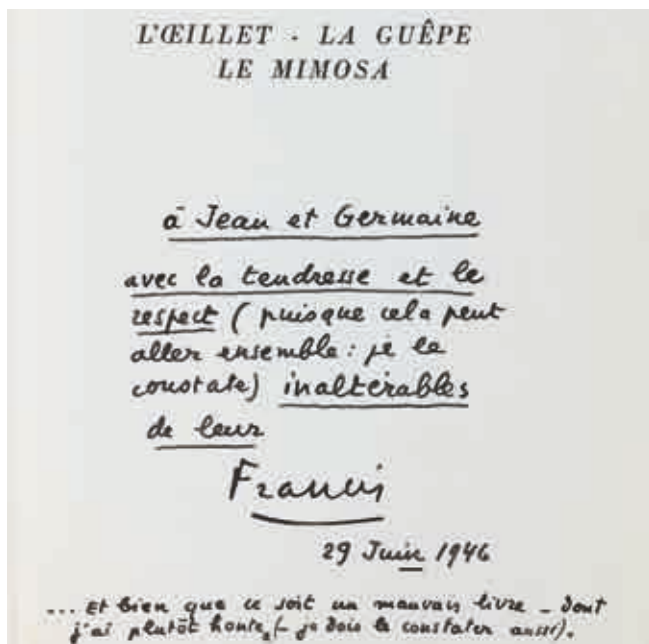 L'ŒILLET - LA GUÊPE
LE MIMOSA
à Jean et Germaine
avec la tendresse et le
respect (puisque cela peut
aller ensemble : je le
constate) inaltérables
de leur
Francis
29 Juin 1946
... Et bien que ce soit un mauvais livre - dont
j'ai plutôt honte, (- je dois le constater aussi).